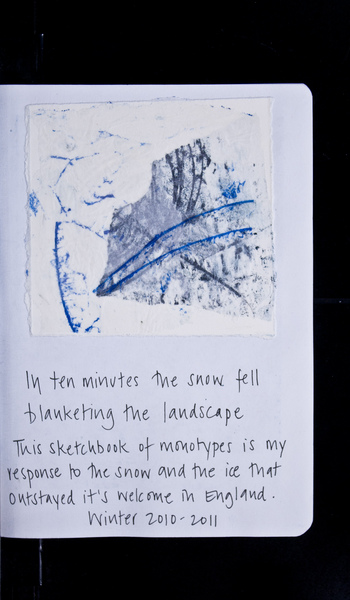 In ten minutes the snow fell
blanketing the landscape
This sketchbook of monotypes is my
response to the snow and the ice that
outstayed it's welcome in England.
Winter 2010-2011